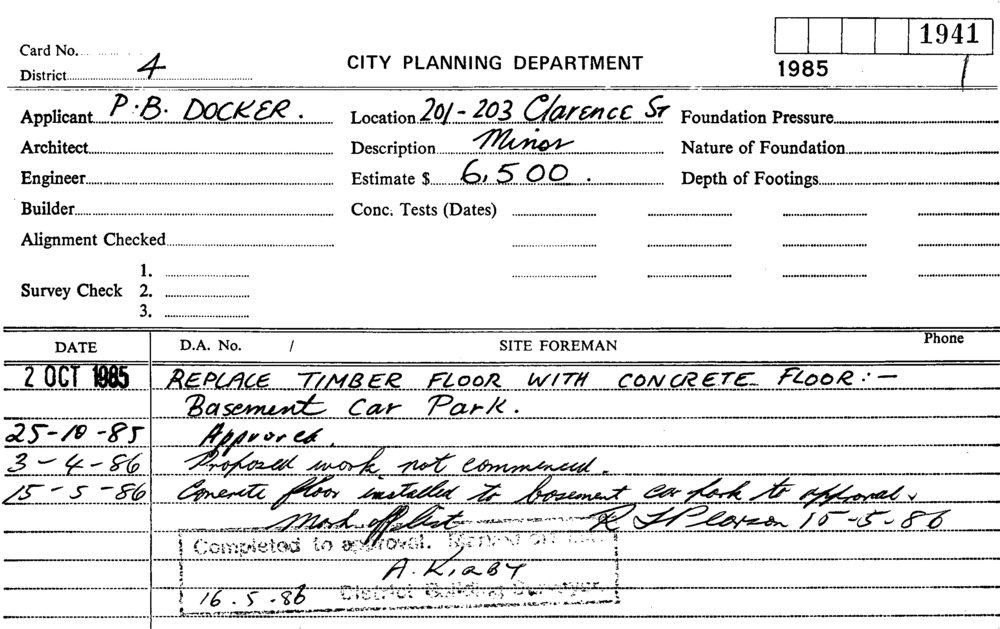 1941
Card No.
District 4
CITY PLANNING DEPARTMENT
1985 1
Applicant P.B. DOCKER.
Location 201-203 Clarence St
Foundation Pressure
Architect
Description Minor
Nature of Foundation
Engineer
Estimate $ 6,500.
Depth of Footings
Builder
Conc. Tests (Dates)
Alignment Checked
Survey Check 1.
2.
3.
DATE D.A. No. / SITE FOREMAN Phone
2 OCT 1985 REPLACE TIMBER FLOOR WITH CONCRETE FLOOR:—
Basement Car Park.
25-10-85 Approved.
3-4-86 Proposed work not commenced.
15-5-86 Concrete floor installed to basement car park to approval.
Mark off list R Pearson 15-5-86
Completed to approval. Marked off
A. KIRBY
16.5.86 District Building Surveyor